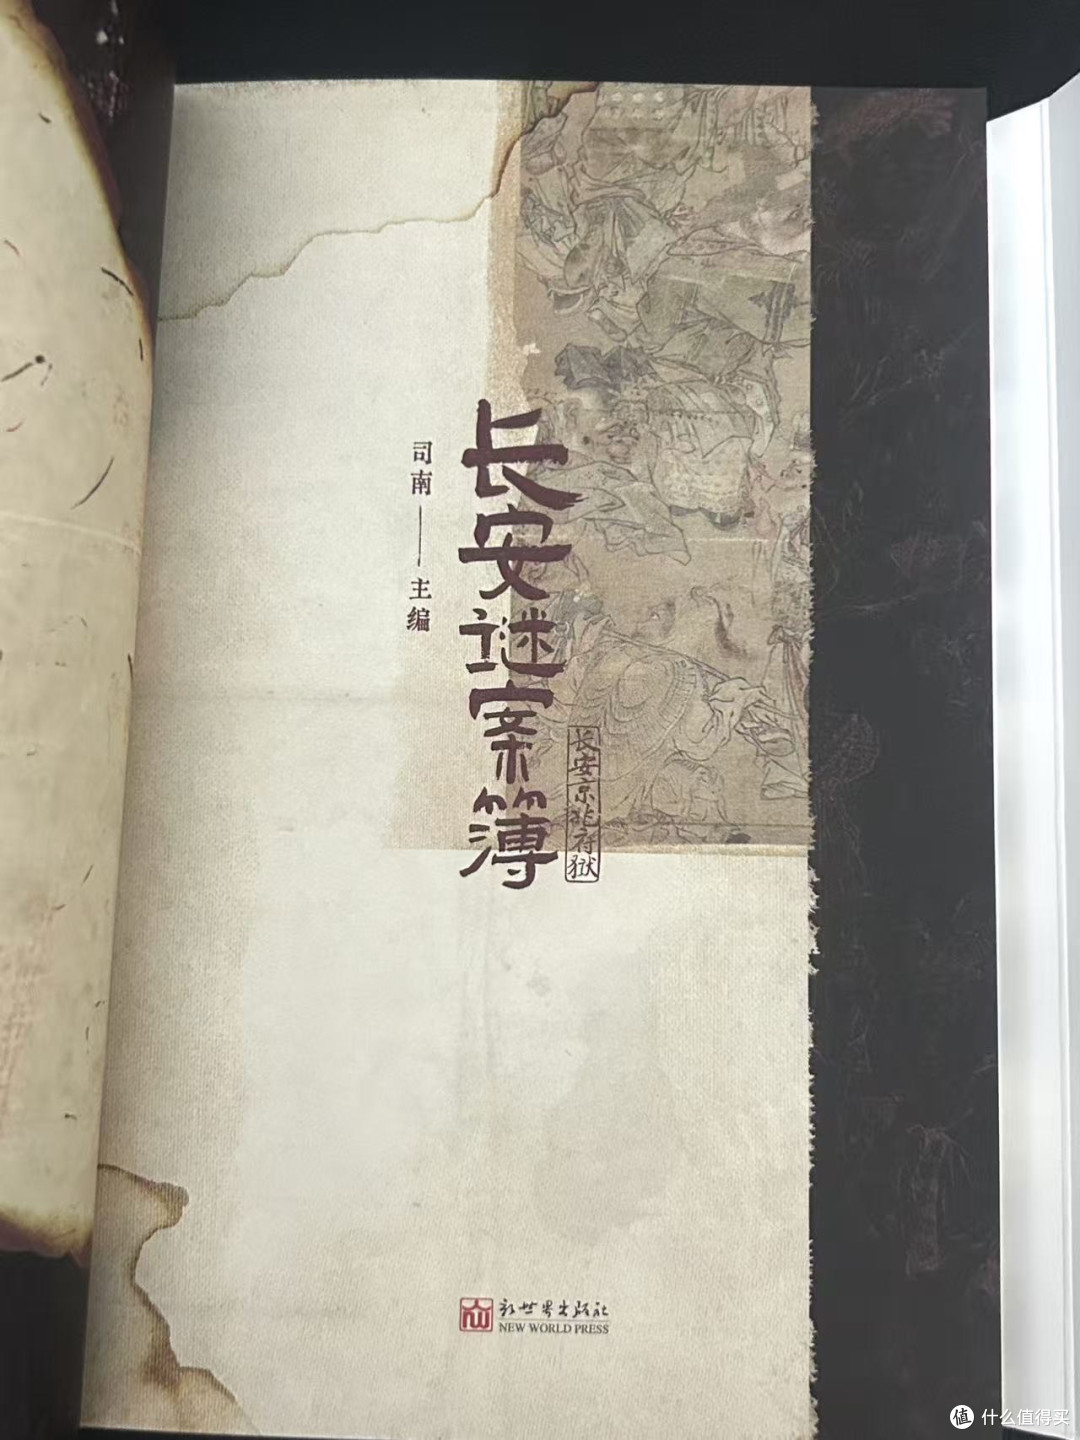 长安谜案簿
长安京兆府狱
司南——主编
新世界出版社
NEW WORLD PRESS
值 什么值得买